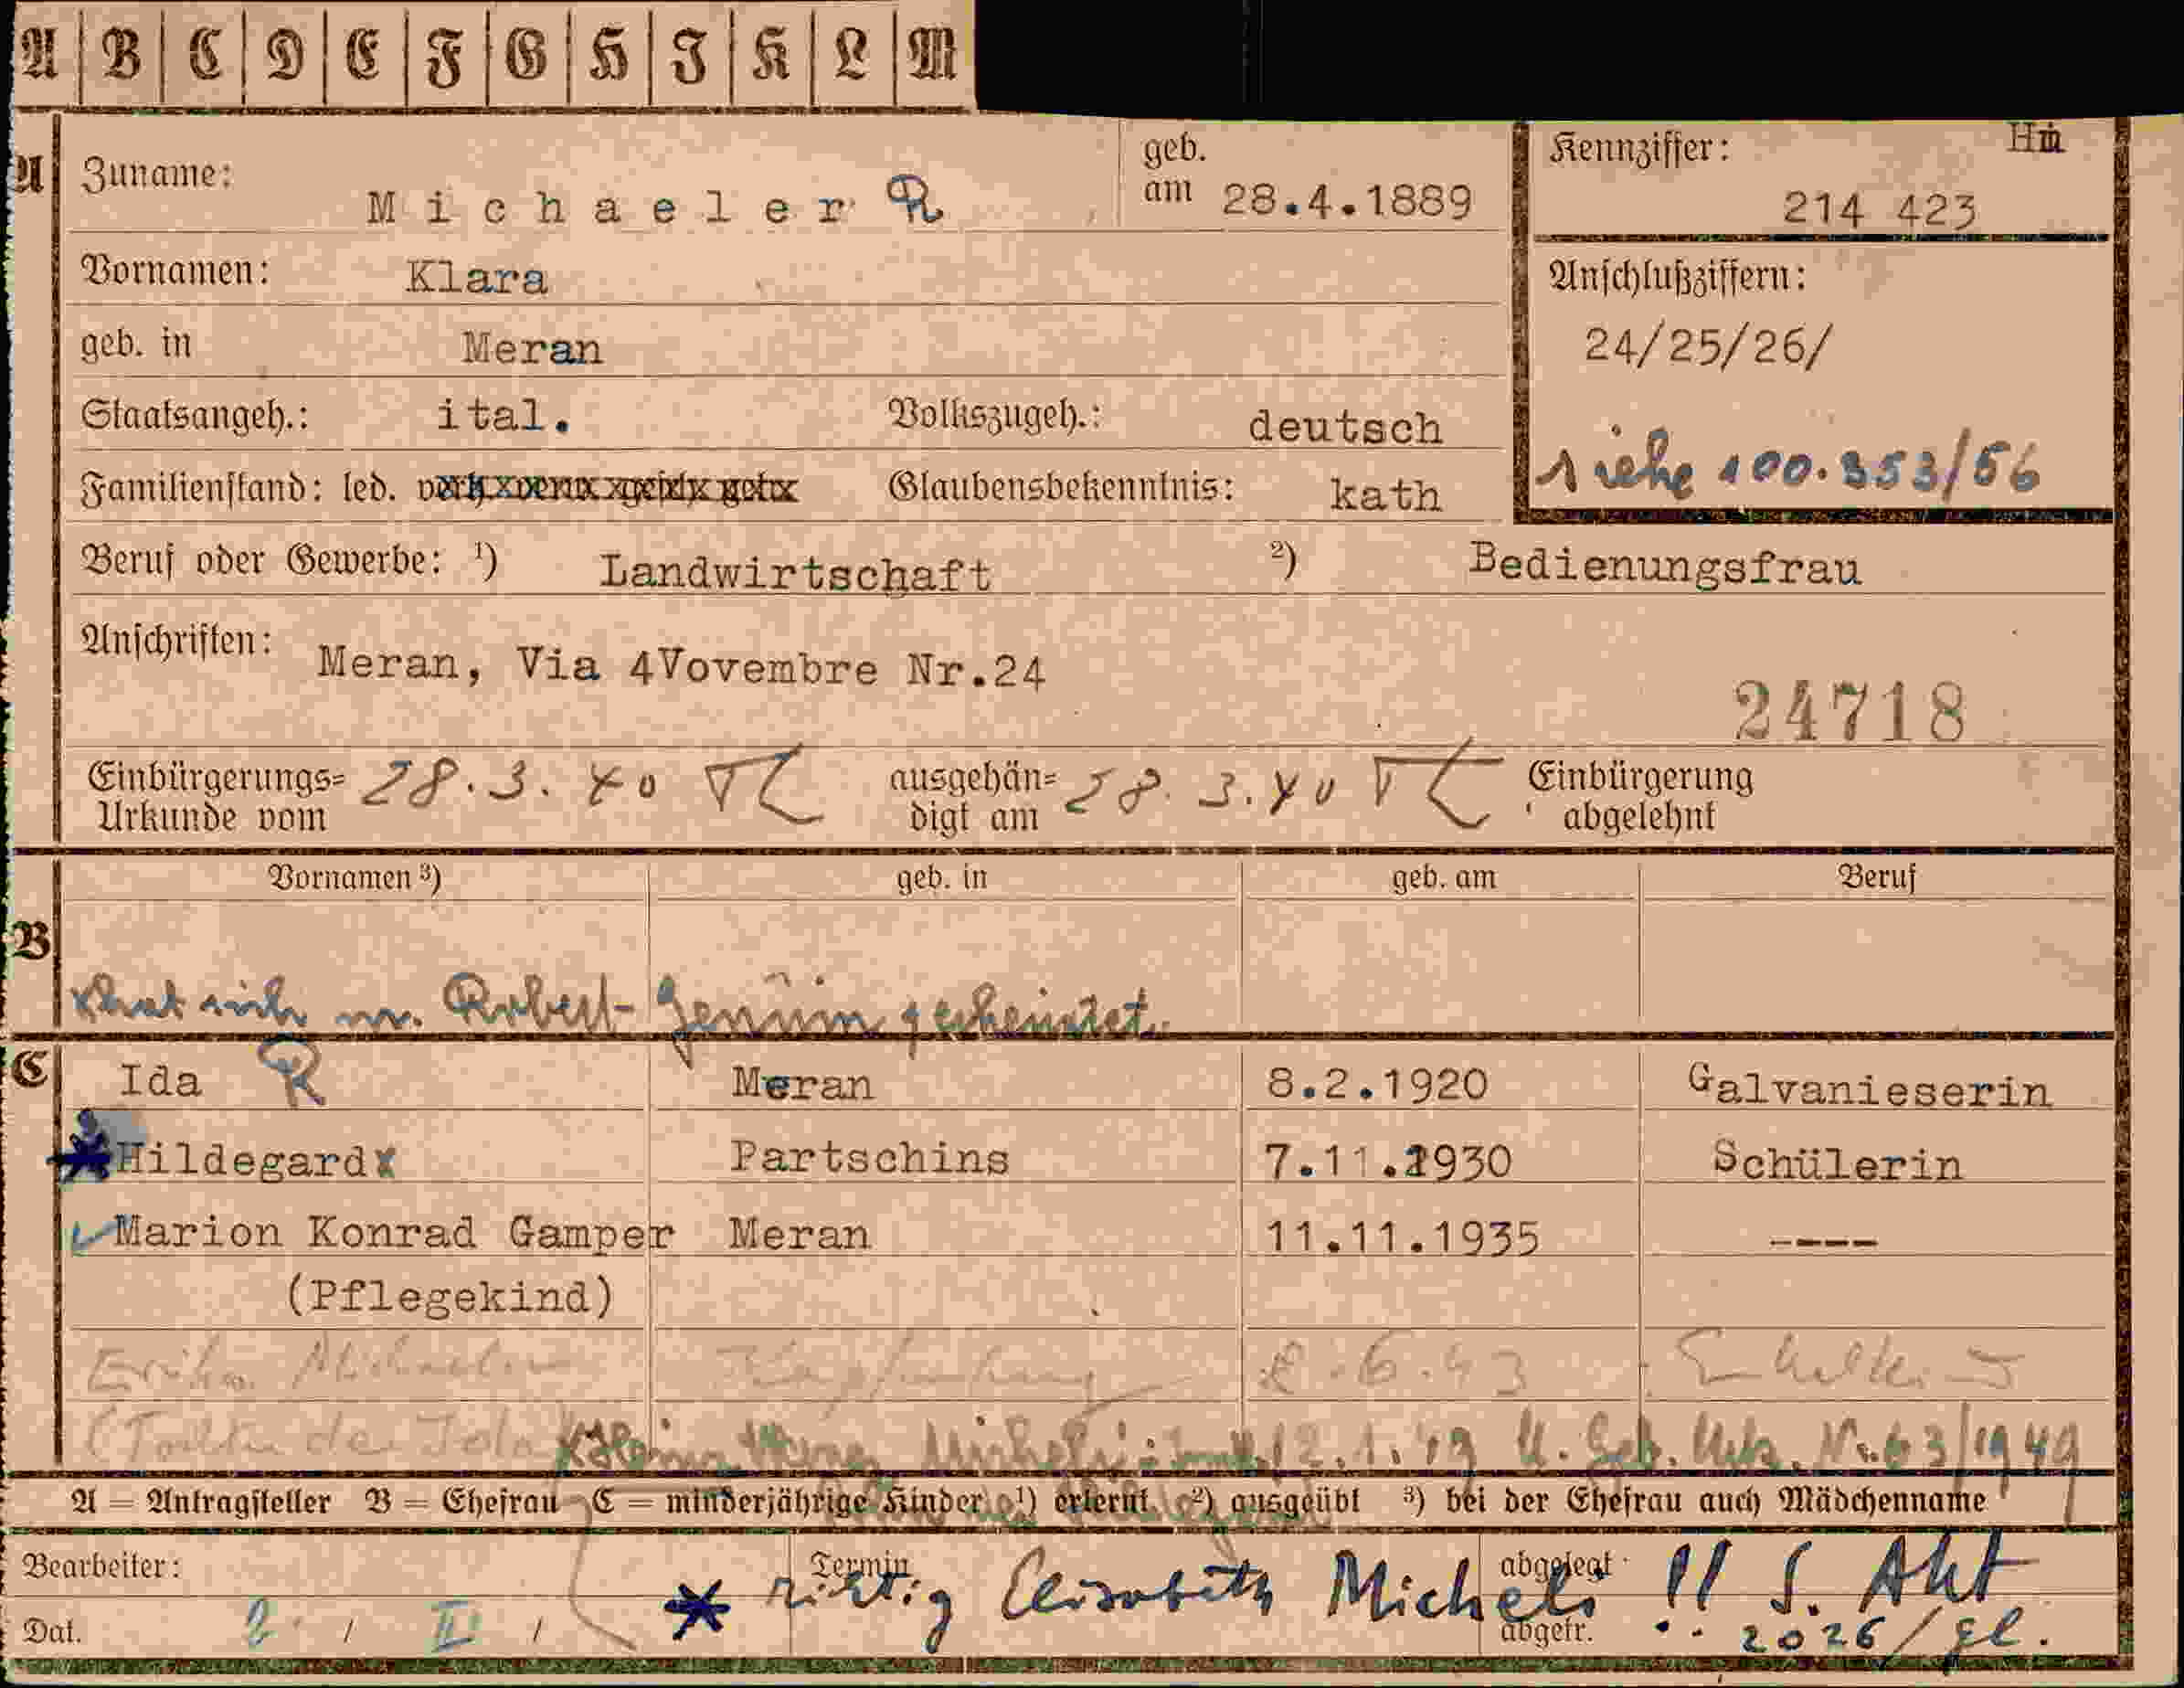 A B C D E F G H I K L M
A
Zuname: Michaeler R
geb. am 28.4.1889
Kennziffer: Hü
214 423
Vornamen: Klara
Anschlußziffern:
24/25/26/
geb. in Meran
Staatsangeh.: ital. Volkszugeh.: deutsch
siehe 100.353/56
Familienstand: led. verh. verw. gesch. getr. Glaubensbekenntnis: kath
Beruf oder Gewerbe: ¹) Landwirtschaft ²) Bedienungsfrau
Anschriften: Meran, Via 4Vovembre Nr.24
24718
Einbürgerungs= Urkunde vom 28.3.40 ausgehän= digt am 28.3.40 Einbürgerung abgelehnt
Vornamen ³) geb. in geb. am Beruf
B
hat sich m. Robert geheiratet.
C
Ida R Meran 8.2.1920 Galvanieserin
* Hildegard x Partschins 7.11.1930 Schülerin
Marion Konrad Gamper Meran 11.11.1935 ----
(Pflegekind)
Erika Michaeler 6.43 Enkelkind
(Tochter der Ida 12.1.49 Geb. Urk. Nr. 63/1949
A = Antragsteller B = Ehefrau C = minderjährige Kinder ¹) erlernt ²) ausgeübt ³) bei der Ehefrau auch Mädchenname
Bearbeiter: Termin abgelegt
* richtig Elisabeth Michels !! S. Akt
Dat. 2. / II / abgetr. 2026/gl.